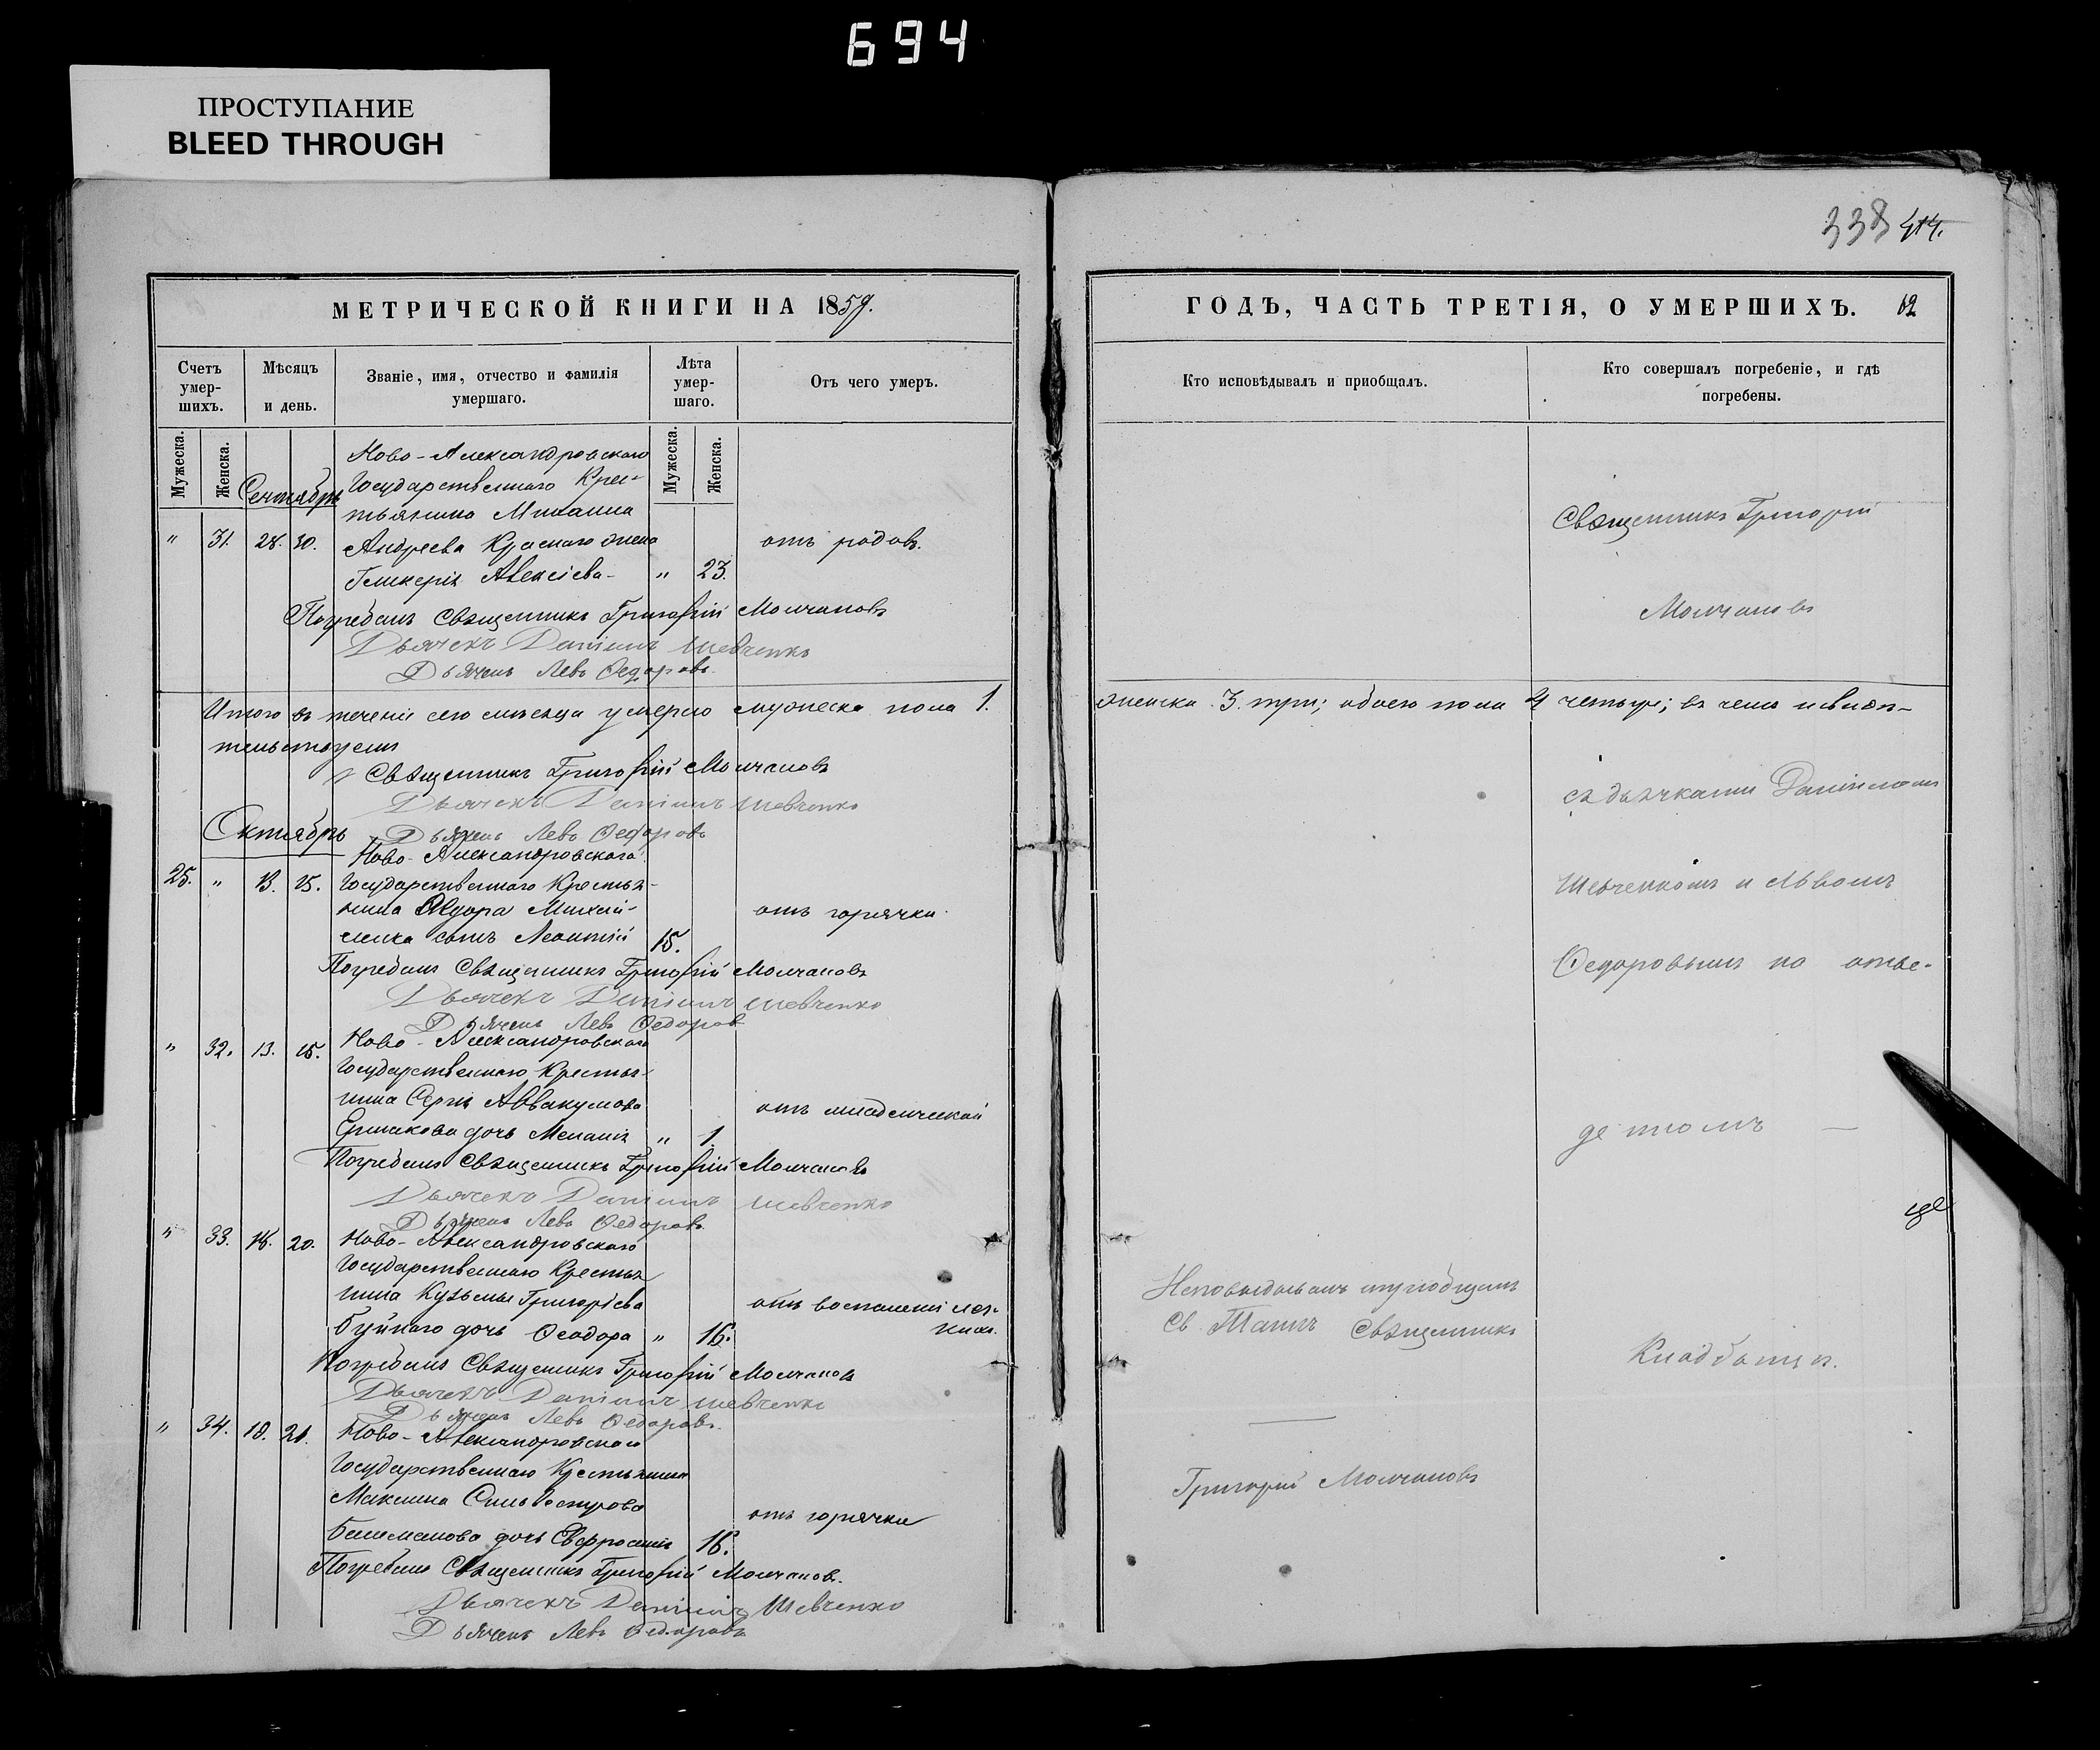 694
ПРОСТУПАНИЕ
BLEED THROUGH
338 414.
МЕТРИЧЕСКОЙ КНИГИ НА 1859.
Счетъ умер-шихъ.
Мѣсяцъ и день.
Званіе, имя, отчество и фамилія умершаго.
Лѣта умер-шаго.
Отъ чего умеръ.
Мужеска.
Женска.
Мужеска.
Женска.
Сентябрь
Ново-Александровскаго
Государственнаго Крес-
тьянина Михаила
" 31. 28. 30. Андреева Краснаго жена отъ родовъ.
Гликерія Алексіева - " 23.
Погребалъ Священникъ Григорій Молчановъ
Дьячекъ Даніилъ Шевченко
Дьячекъ Левъ Ѳедоровъ
Итого въ теченіи сего мѣсяца умерло мужеска пола 1.
тельствуемъ
Священникъ Григорій Молчановъ
Дьячекъ Даніилъ Шевченко
Дьячекъ Левъ Ѳедоровъ
Октябрь
Ново-Александровскаго
25. " 13. 15. Государственнаго Крестья-
нина Ѳедора отъ горячки
сынъ Леонтій 15.
Погребалъ Священникъ Григорій Молчановъ
Дьячекъ Даніилъ Шевченко
Дьячекъ Левъ Ѳедоровъ
" 32. 13. 15. Ново-Александровскаго
Государственнаго Крестья-
нина Сергія Аввакумова отъ младенческой
Ермакова дочь Меланія " 1.
Погребалъ Священникъ Григорій Молчановъ
Дьячекъ Даніилъ Шевченко
Дьячекъ Левъ Ѳедоровъ
" 33. 18. 20. Ново-Александровскаго
Государственнаго Крестья
нина Кузьмы Григорієва отъ воспаленія лег-
Буйнаго дочь Ѳеодора " 16. кихъ.
Погребалъ Священникъ Григорій Молчановъ
Дьячекъ Даніилъ Шевченко
Дьячекъ Левъ Ѳедоровъ
" 34. 18. 21. Ново-Александровскаго
Государственнаго Крестьянина
Максима Сильвестрова отъ горячки
дочь Евфросинія 16.
Погребалъ Священникъ Григорій Молчановъ.
Дьячекъ Даніилъ Шевченко
Дьячекъ Левъ Ѳедоровъ
ГОДЪ, ЧАСТЬ ТРЕТІЯ, О УМЕРШИХЪ.
Кто исповѣдывалъ и приобщалъ.
Кто совершалъ погребеніе, и гдѣ погребены.
Священникъ Григорій
Молчановъ
женска 3. три; обоего пола 4 четыре; въ чемъ и свидѣ-
съ дьячками Даніиломъ
Шевченкомъ и Львомъ
Ѳедоровымъ на отве-
деномъ —
Исповѣдывалъ и приобщалъ
Св. Таинъ Священникъ
Кладбищѣ.
Григорій Молчановъ